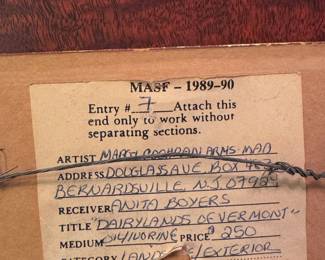 MASF - 1989-90
Entry # 7 Attach this
end only to work without
separating sections.
ARTIST MARGY COCHRAN ARMS-MAN
ADDRESS DOUGLASS AVE. BOX
BERNARDSVILLE, N.J. 07924
RECEIVER ANITA BOYERS
TITLE "DAIRYLANDS OF VERMONT"
MEDIUM OIL/IVORINE PRICE $ 250
CATEGORY EXTERIOR